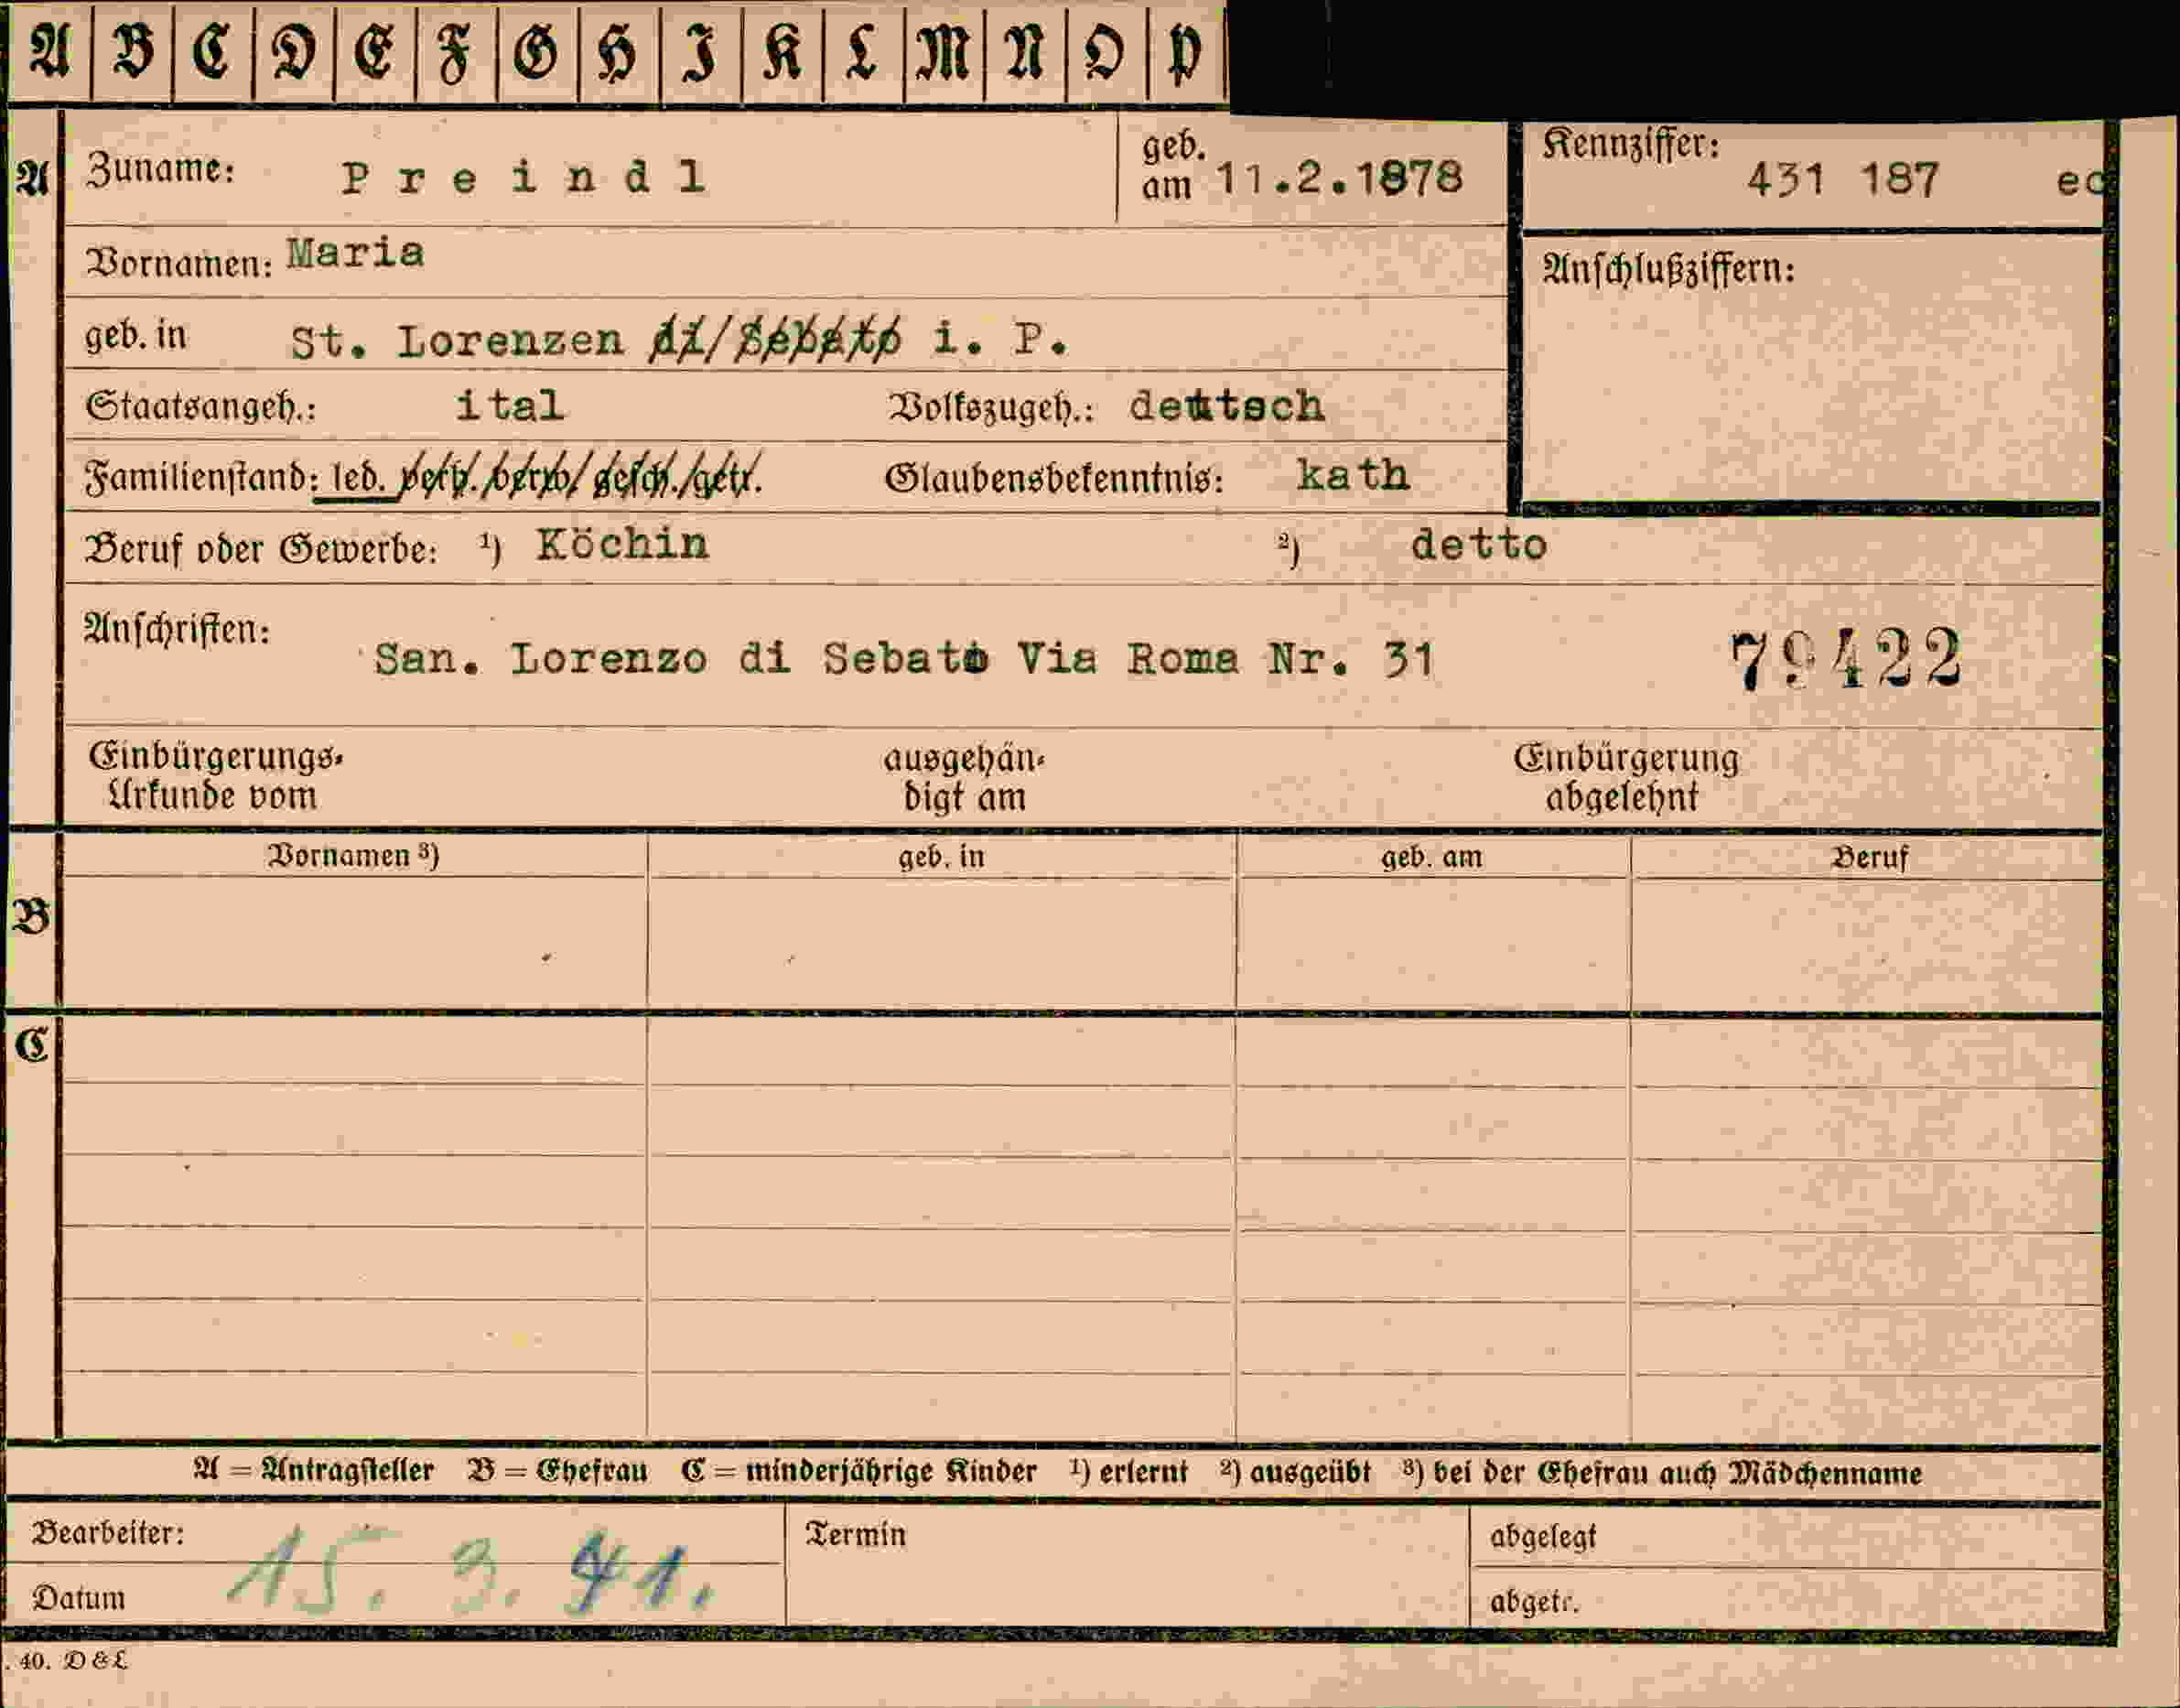 A B C D E F G H I K L M N O P
A Zuname: Preindl geb. am 11.2.1878 Kennziffer: 431 187 ec
Vornamen: Maria Anschlußziffern:
geb. in St. Lorenzen di Sebato i. P.
Staatsangeh.: ital Volkszugeh.: deutsch
Familienstand: led. verh. verw. gesch. getr. Glaubensbekenntnis: kath
Beruf oder Gewerbe: ¹) Köchin ²) detto
Anschriften: San. Lorenzo di Sebato Via Roma Nr. 31 79422
Einbürgerungs- ausgehän- Einbürgerung
Urkunde vom digt am abgelehnt
Vornamen ³) geb. in geb. am Beruf
B
C
A = Antragsteller B = Ehefrau C = minderjährige Kinder ¹) erlernt ²) ausgeübt ³) bei der Ehefrau auch Mädchenname
Bearbeiter: Termin abgelegt
Datum 15. 3. 41. abgetr.
. 40. D & L